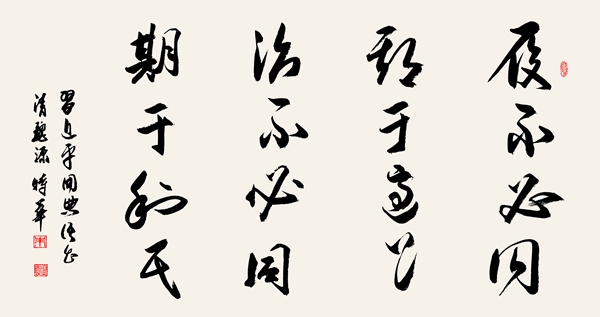 履不必同
期于適足
治不必同
期于利民
習近平用典
清魏源